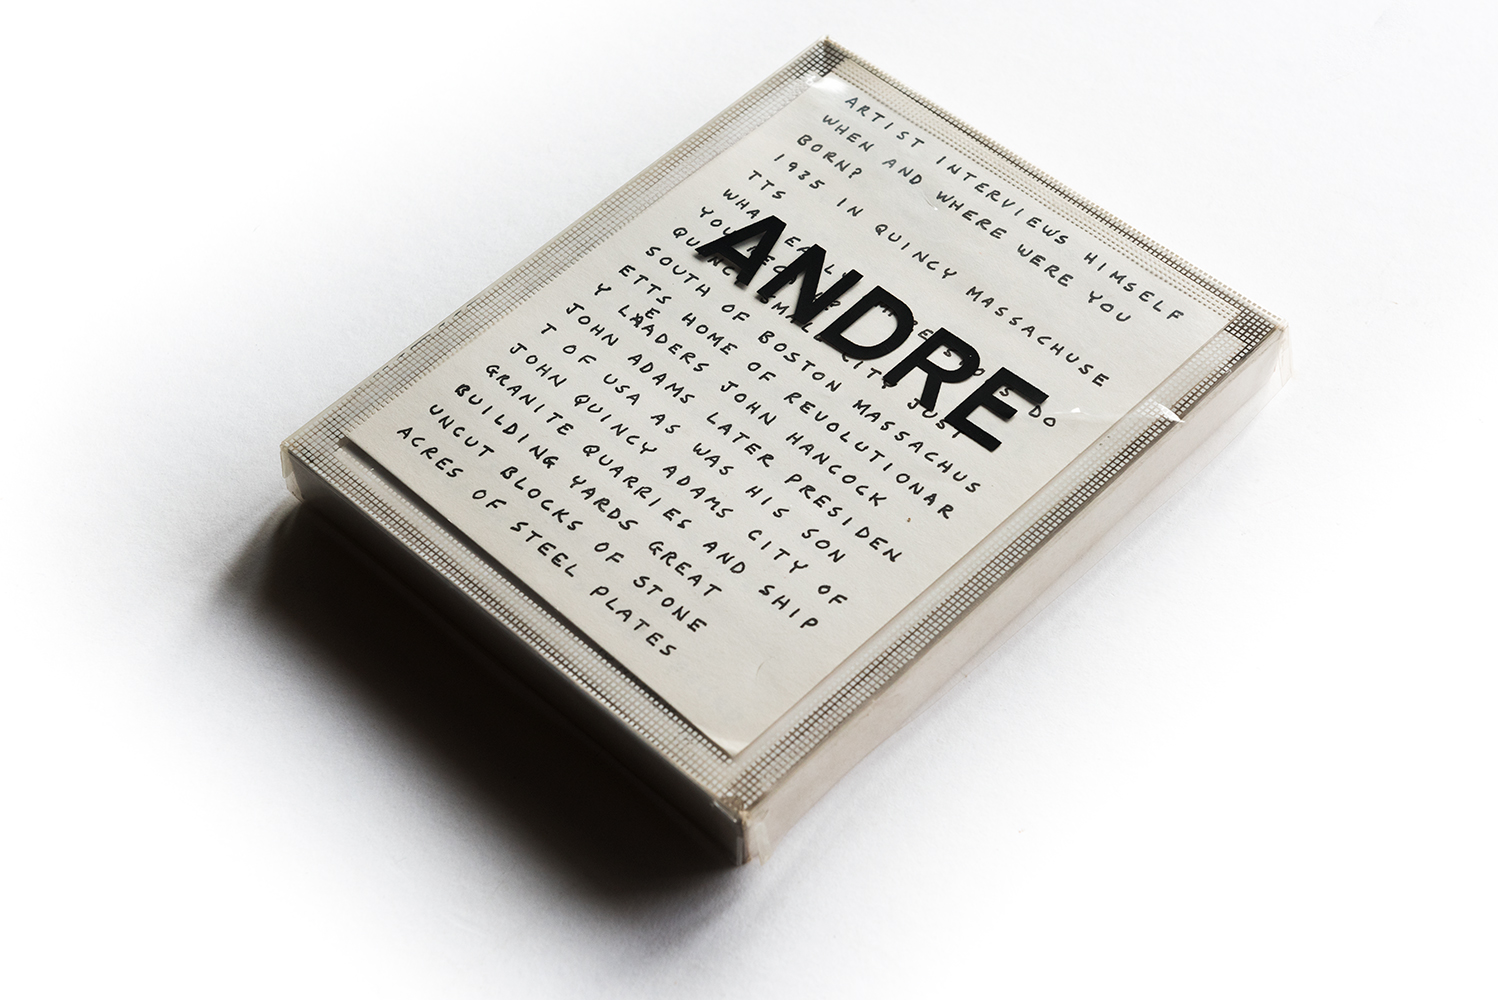 ARTIST INTERVIEWS HIMSELF
WHEN AND WHERE WERE YOU
BORN?
1935 IN QUINCY MASSACHUSE
TTS
DO
YOU
QUINCY SMALL CITY JUST
SOUTH OF BOSTON MASSACHUS
ETTS HOME OF REVOLUTIONAR
Y LEADERS JOHN HANCOCK
JOHN ADAMS LATER PRESIDEN
T OF USA AS WAS HIS SON
JOHN QUINCY ADAMS CITY OF
GRANITE QUARRIES AND SHIP
BUILDING YARDS GREAT
UNCUT BLOCKS OF STONE
ACRES OF STEEL PLATES
ANDRE